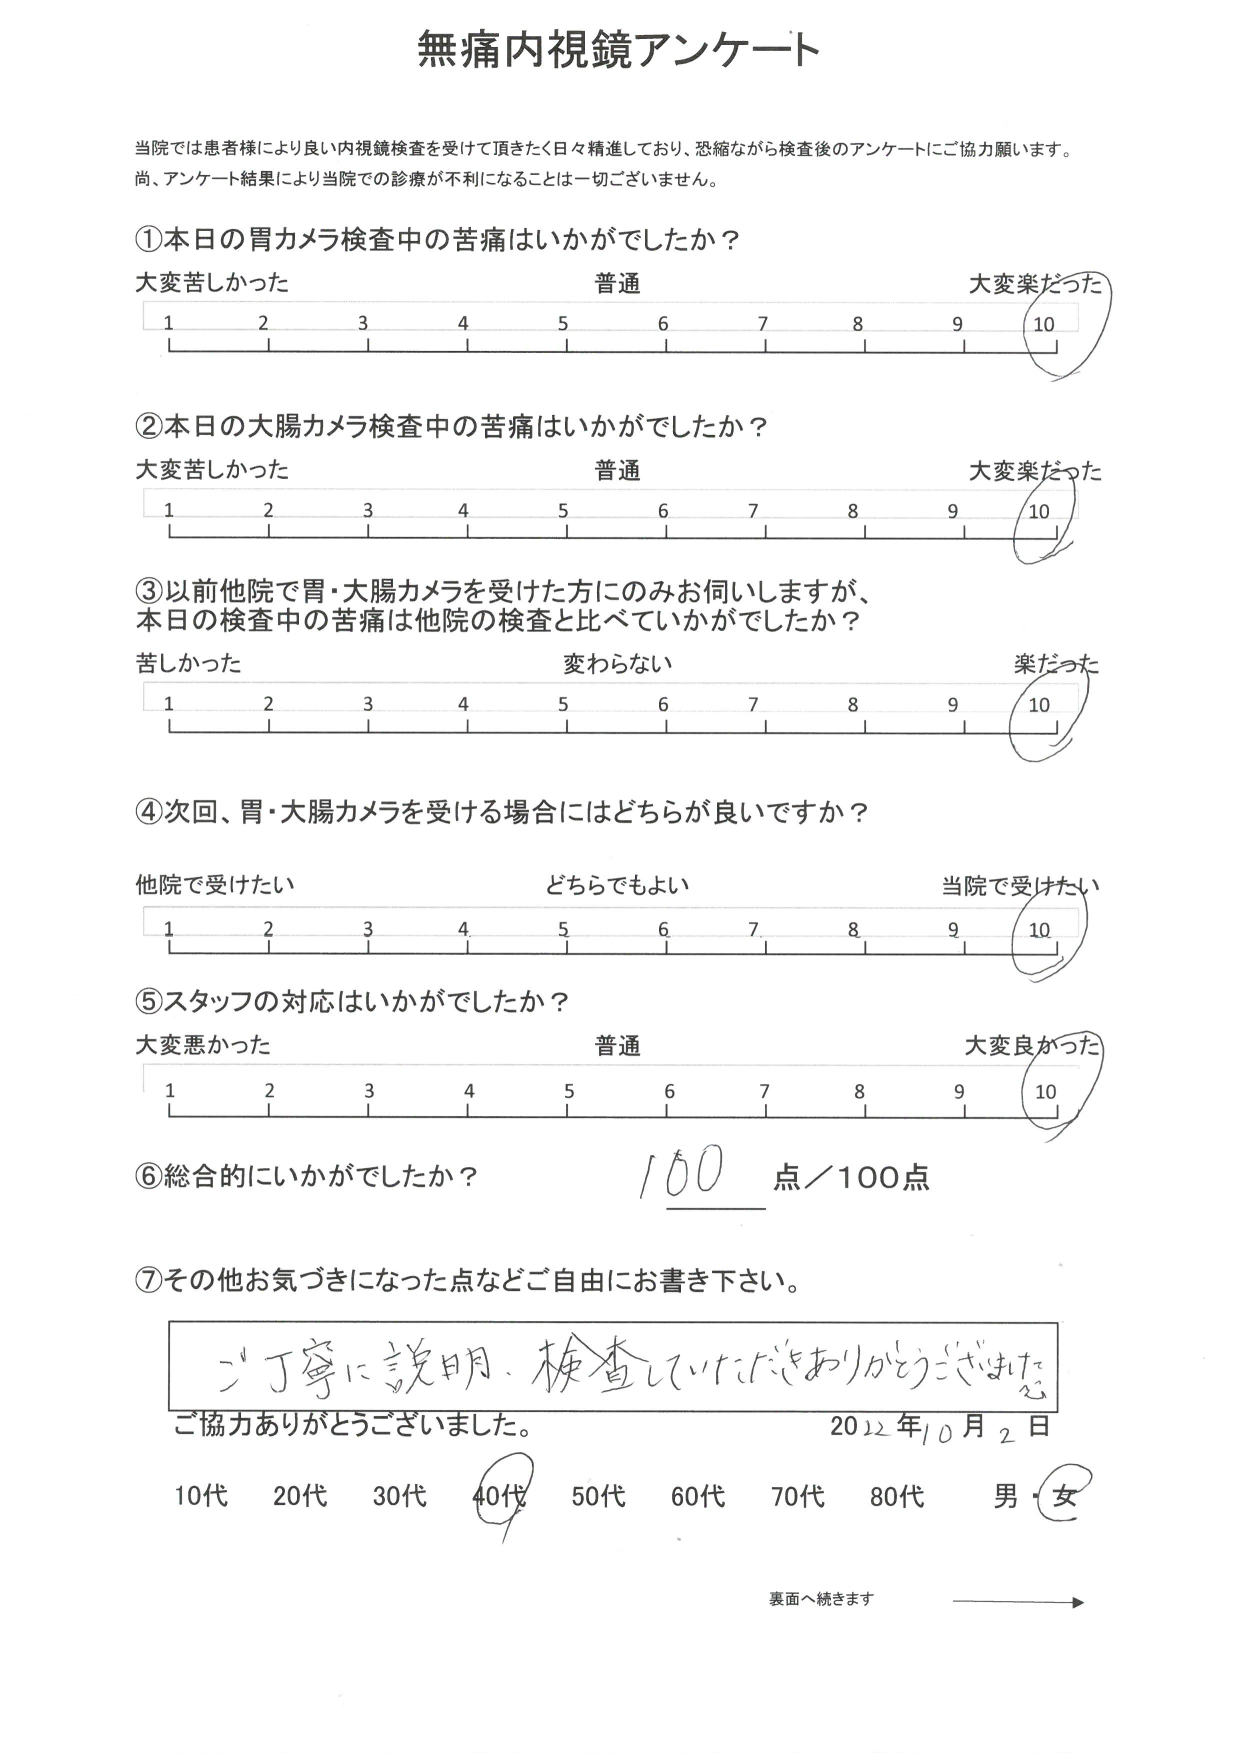 無痛内視鏡アンケート
当院では患者様により良い内視鏡検査を受けて頂きたく日々精進しており、恐縮ながら検査後のアンケートにご協力願います。
尚、アンケート結果により当院での診療が不利になることは一切ございません。
①本日の胃カメラ検査中の苦痛はいかがでしたか？
大変苦しかった 普通 大変楽だった
1 2 3 4 5 6 7 8 9 10
②本日の大腸カメラ検査中の苦痛はいかがでしたか？
大変苦しかった 普通 大変楽だった
1 2 3 4 5 6 7 8 9 10
③以前他院で胃・大腸カメラを受けた方にのみお伺いしますが、
本日の検査中の苦痛は他院の検査と比べていかがでしたか？
苦しかった 変わらない 楽だった
1 2 3 4 5 6 7 8 9 10
④次回、胃・大腸カメラを受ける場合にはどちらが良いですか？
他院で受けたい どちらでもよい 当院で受けたい
1 2 3 4 5 6 7 8 9 10
⑤スタッフの対応はいかがでしたか？
大変悪かった 普通 大変良かった
1 2 3 4 5 6 7 8 9 10
⑥総合的にいかがでしたか？ 100 点／100点
⑦その他お気づきになった点などご自由にお書き下さい。
ご丁寧に説明、検査していただきありがとうございました
ご協力ありがとうございました。 2022年10月2日
10代 20代 30代 40代 50代 60代 70代 80代 男・女
裏面へ続きます